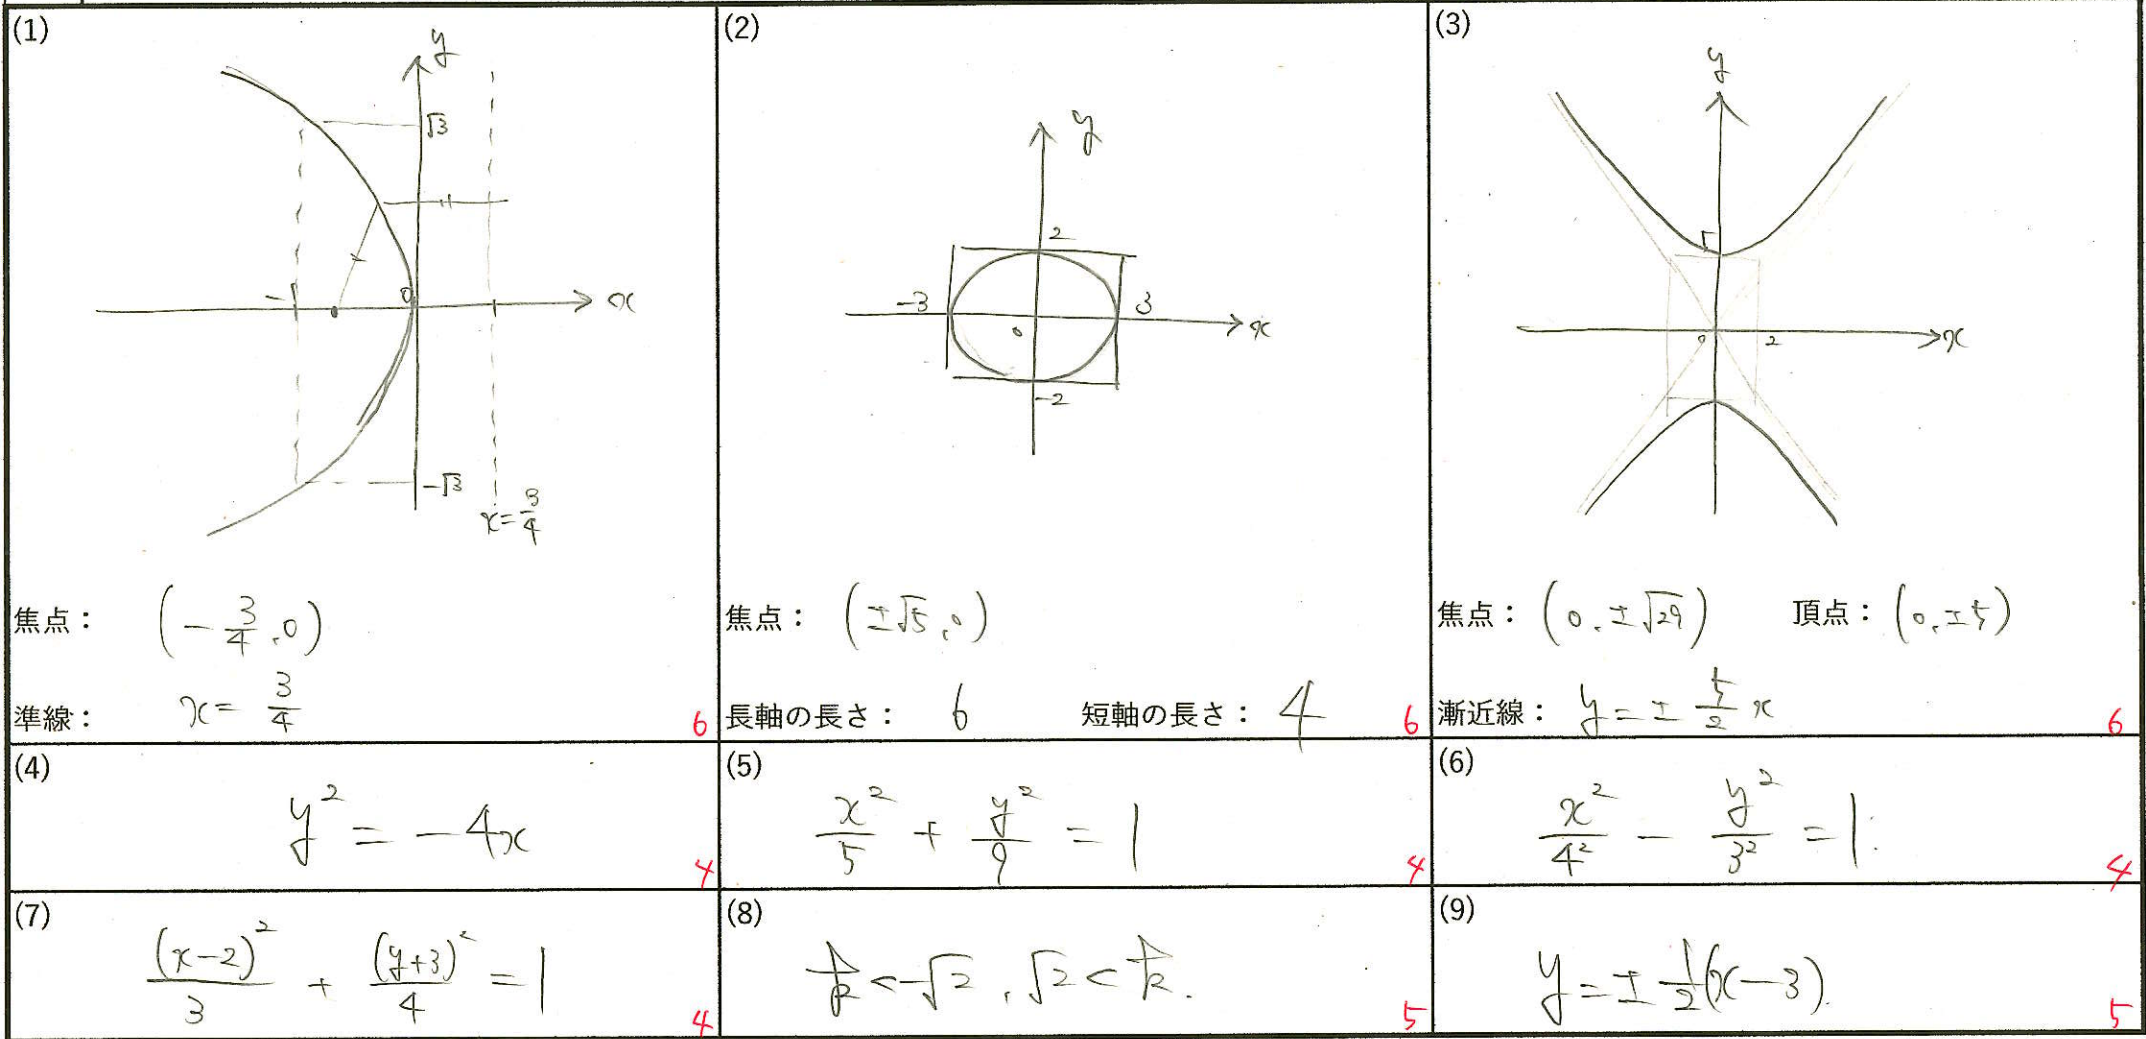 (1)
y
√3
-1
0
x
-√3
x=3/4
焦点： (-3/4, 0)
準線： x=3/4
6
(2)
y
2
-3
3
0
x
-2
焦点： (±√5, 0)
長軸の長さ： 6 短軸の長さ： 4
6
(3)
y
5
0
2
x
焦点： (0, ±√29) 頂点： (0, ±5)
漸近線： y=±5/2 x
6
(4)
y²=-4x
4
(5)
x²/5 + y²/9 = 1
4
(6)
x²/4² - y²/3² = 1.
4
(7)
(x-2)²/3 + (y+3)²/4 = 1
4
(8)
k<-√2, √2<k.
5
(9)
y=±1/2(x-3).
5